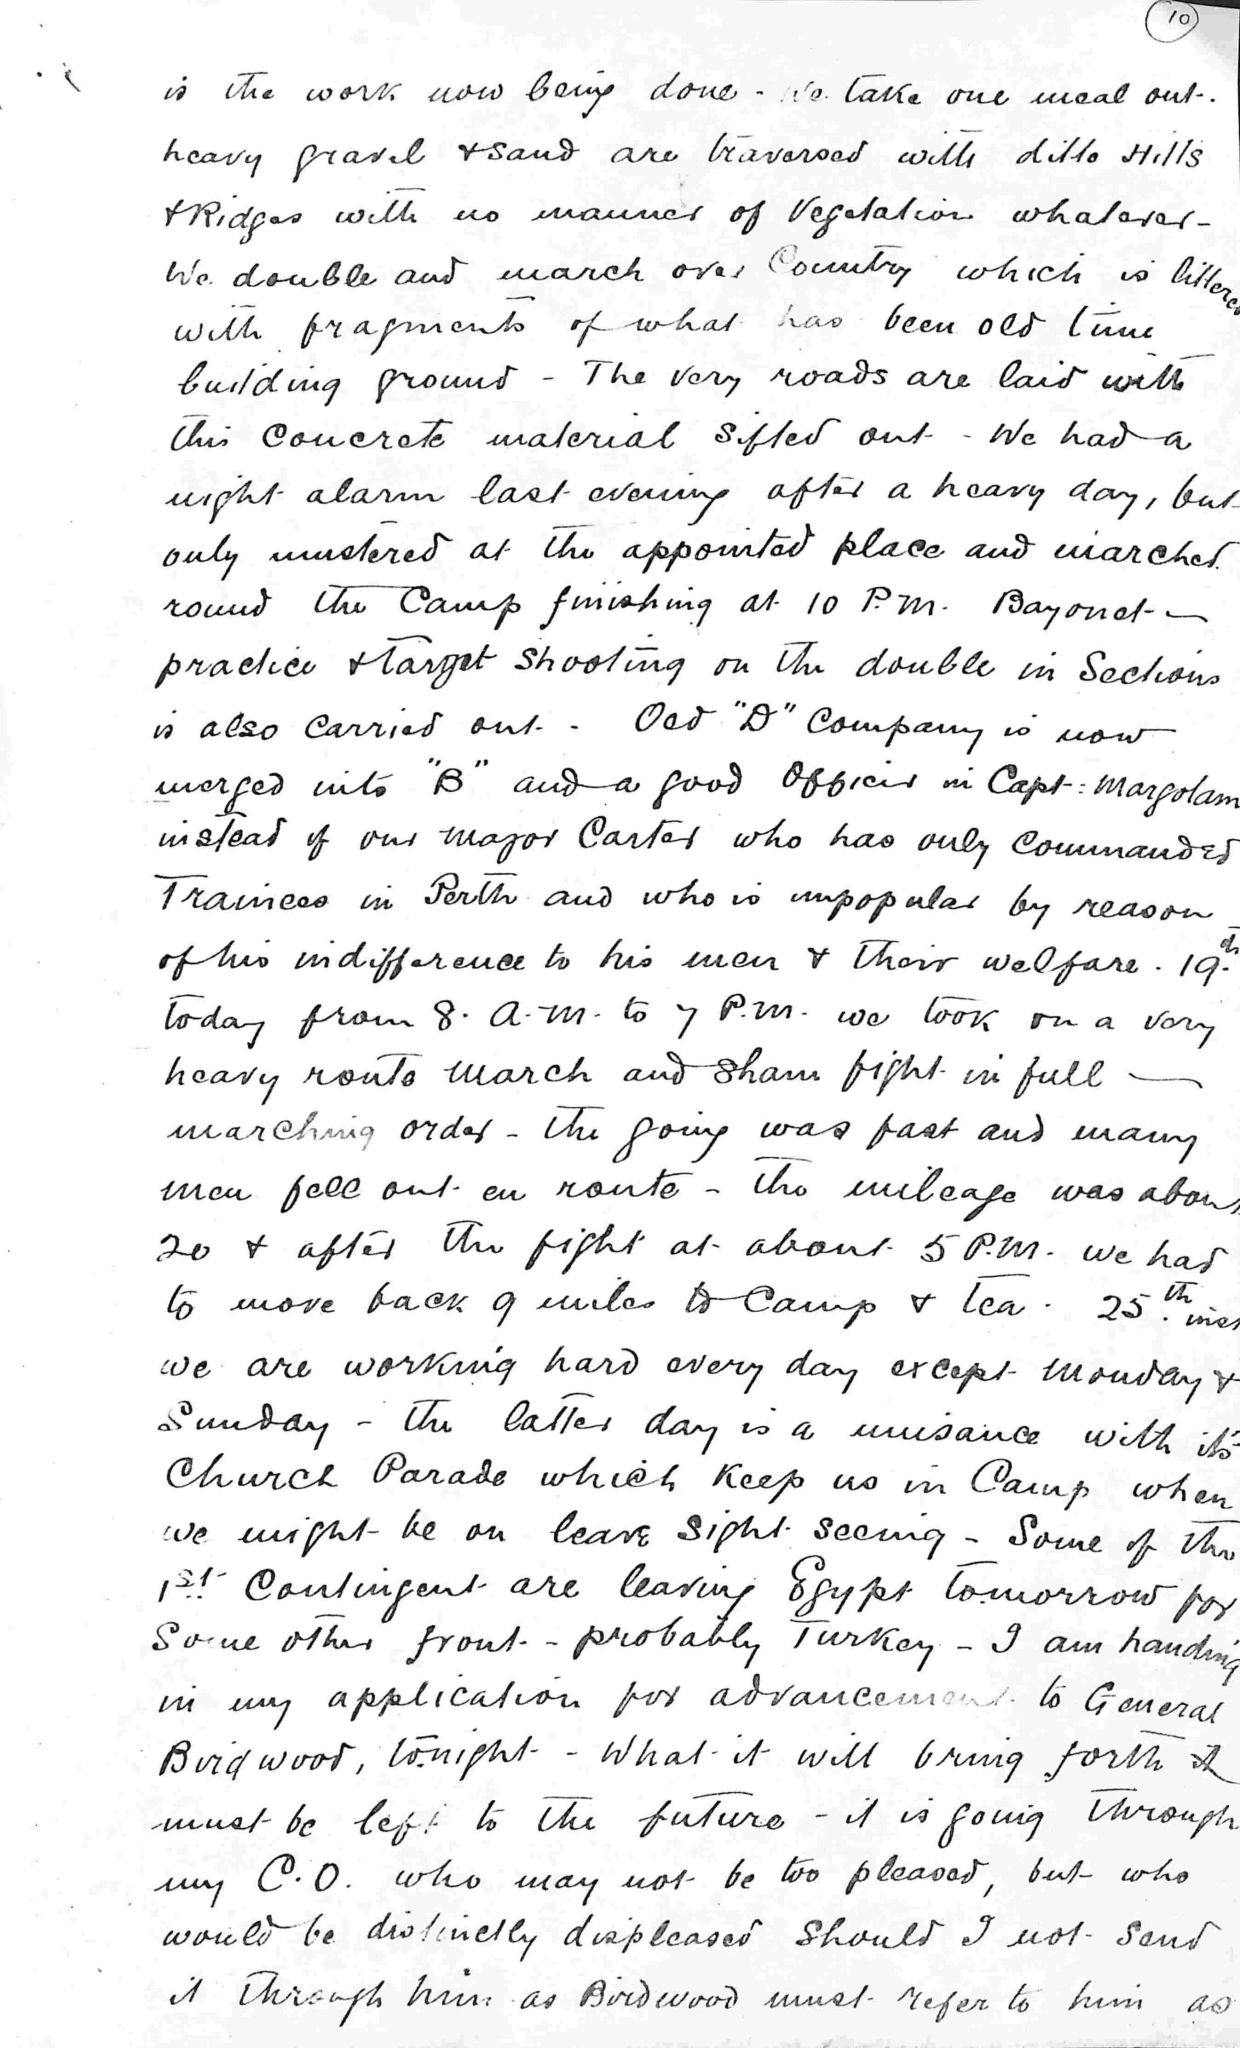 10
is the work now being done - We take one meal out.
heavy gravel & sand are traversed with ditto Hills
& Ridges with no manner of Vegetation whatever -
We double and march over Country which is littered
with fragments of what has been old time
building ground - The very roads are laid with
this concrete material sifted out - We had a
night alarm last evening after a heavy day, but
only mustered at the appointed place and marched
round the Camp finishing at 10 P.M. Bayonet -
practice & Target shooting on the double in Sections
is also carried out - Old "D" Company is now
merged into "B" and a good Officer in Capt: Margolam
instead of our Major Carter who has only commanded
Trainees in Perth and who is unpopular by reason
of his indifference to his men & their welfare. 19th
today from 8. A.M. to 7 P.M. we took on a very
heavy route march and sham fight in full -
marching order - the going was fast and many
men fell out en route - the mileage was about
20 & after the fight at about 5 P.M. we had
to move back 9 miles to Camp & tea. 25th inst
we are working hard every day except Monday &
Sunday - the latter day is a nuisance with it's
Church Parade which keep us in Camp when
we might be on leave sight seeing - Some of the
1st Contingent are leaving Egypt tomorrow for
some other front - probably Turkey - I am handing
in my application for advancement to General
Birdwood, tonight - What it will bring forth it
must be left to the future - it is going through
my C.O. who may not be too pleased, but who
would be distinctly displeased should I not send
it through him as Birdwood must refer to him as